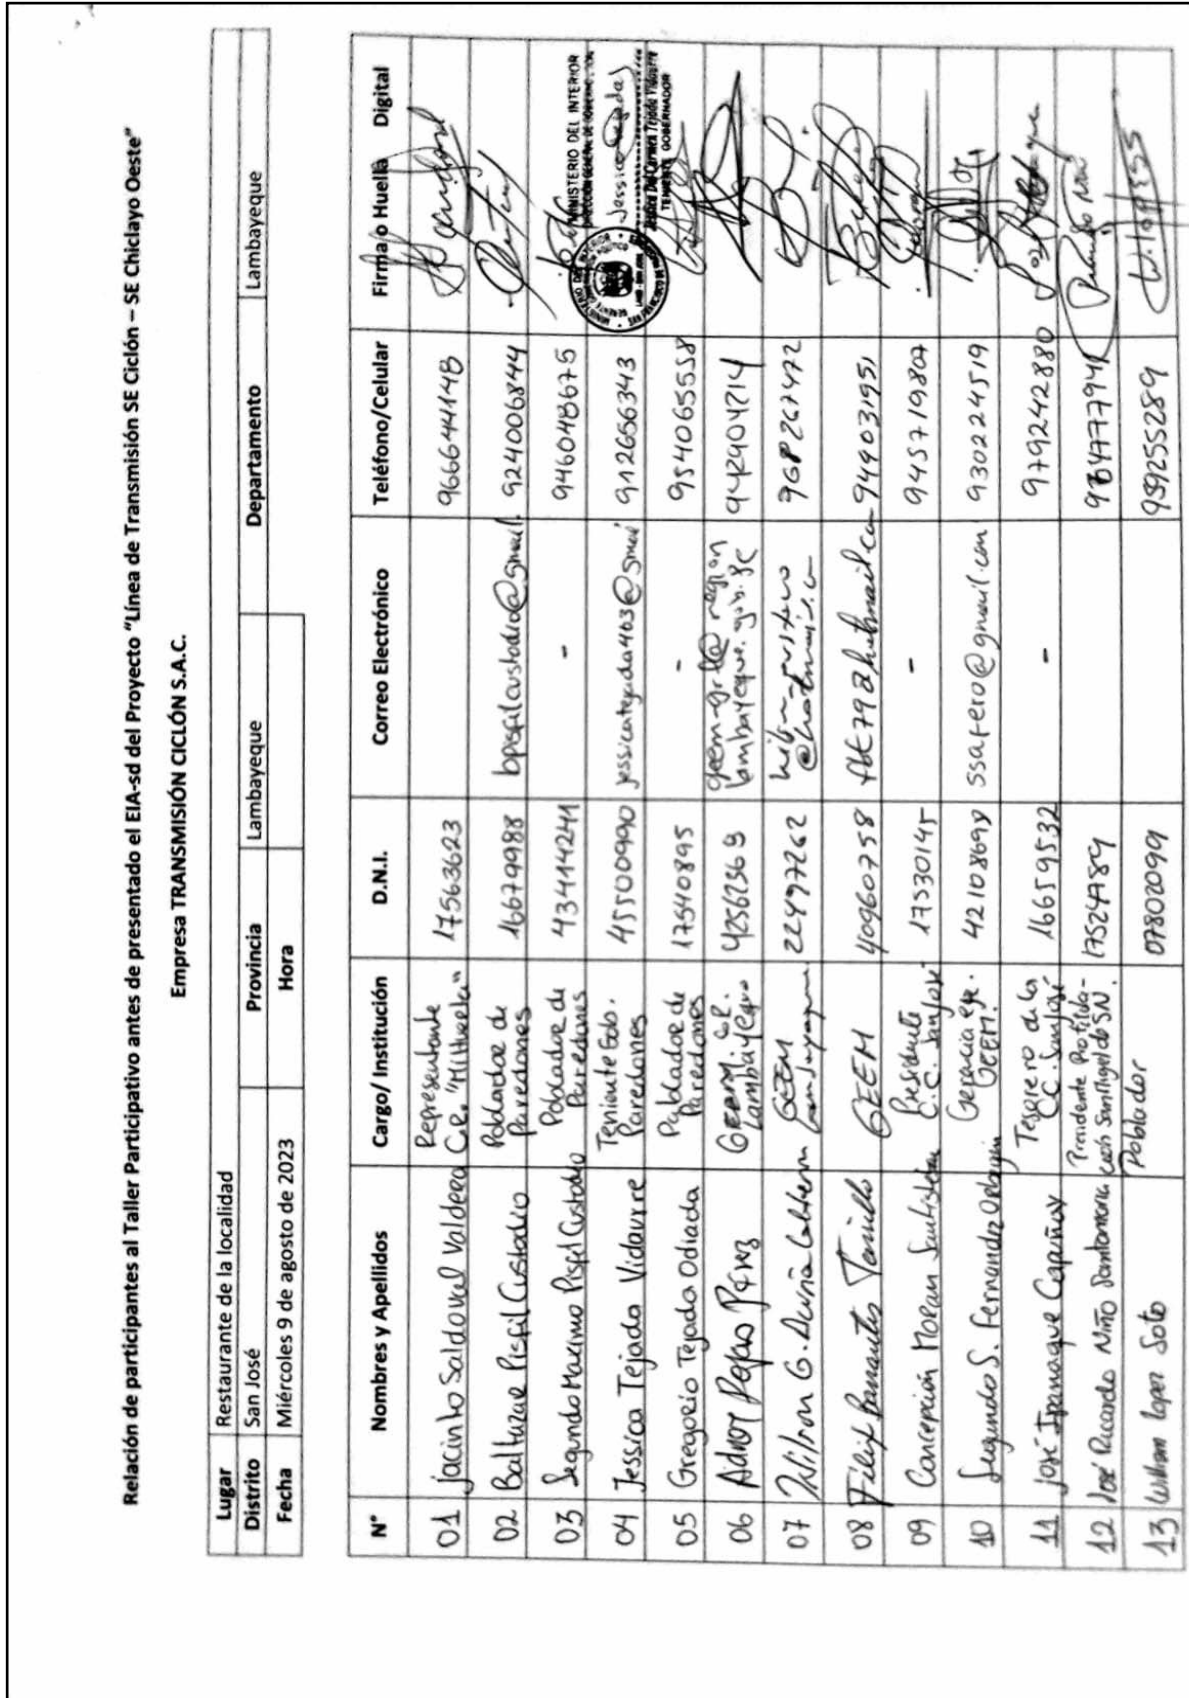 Relación de participantes al Taller Participativo antes de presentado el EIA-sd del Proyecto "Línea de Transmisión SE Ciclón – SE Chiclayo Oeste"
Empresa TRANSMISIÓN CICLÓN S.A.C.
Lugar Restaurante de la localidad
Distrito San José Provincia Lambayeque Departamento Lambayeque
Fecha Miércoles 9 de agosto de 2023 Hora
N° Nombres y Apellidos Cargo/ Institución D.N.I. Correo Electrónico Teléfono/Celular Firma o Huella Digital
01 Jacinto Saldovel Valdera Representante C.R. "Mi Huerta" 17563623 966644148
02 Baltazar Pisfil Custodio Poblador de Paredones 16679988 bpisfilcustodio@gmail. 924006844
03 Segundo Maximo Pisfil Custodio Poblador de Paredones 43414241 - 946048675
04 Jessica Tejada Vidaurre Teniente Gob. Paredones 45500990 jessicatejada403@gmail 912656343
MINISTERIO DEL INTERIOR
Jessica Del Carmen Tejada Vidaurre
TENIENTE GOBERNADOR
05 Gregorio Tejada Odiada Poblador de Paredones 17540895 - 954065558
06 Pérez Lambayeque 42562569 lambayeque.gob.pe 942904214
07 Wilson G. Acuña GEEM 22497262 968267472
08 Barrantes GEEM 40960758 949031951
09 Concepción Moran Santisteban Presidente C.C. San José 17530145 - 945719807
10 Segundo S. Fernandez Gerencia eje. GEEM. 42108698 ssafero@gmail.com 930224519
11 José Ipanaque Capuñay Tesorero de la C.C. San José 16659532 - 979242880
12 José Ricardo Niño Santamaria Presidente 17524789
13 William Lopez Soto Poblador 07802099 959255289